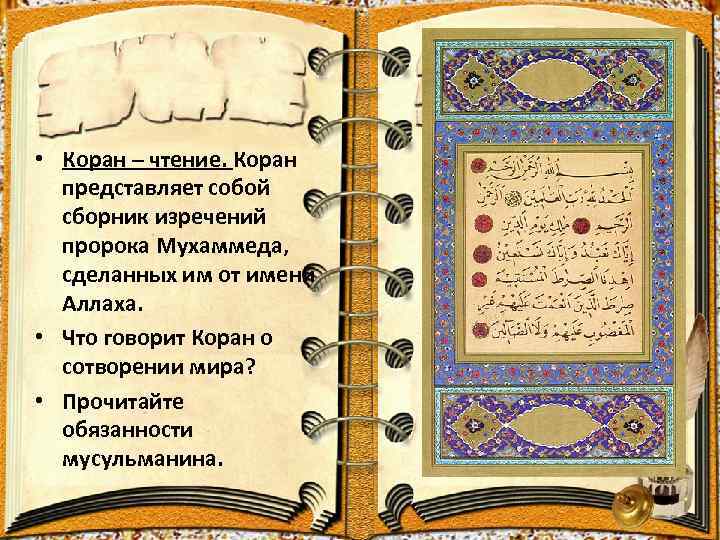 • Коран – чтение. Коран
представляет собой
сборник изречений
пророка Мухаммеда,
сделанных им от имени
Аллаха.
• Что говорит Коран о
сотворении мира?
• Прочитайте
обязанности
мусульманина.
بِسْمِ اللَّهِ الرَّحْمَٰنِ الرَّحِيمِ
الْحَمْدُ لِلَّهِ رَبِّ الْعَالَمِينَ الرَّحْمَٰنِ
الرَّحِيمِ مَالِكِ يَوْمِ الدِّينِ
إِيَّاكَ نَعْبُدُ وَإِيَّاكَ نَسْتَعِينُ
اهْدِنَا الصِّرَاطَ الْمُسْتَقِيمَ
صِرَاطَ الَّذِينَ أَنْعَمْتَ عَلَيْهِمْ غَيْرِ
الْمَغْضُوبِ عَلَيْهِمْ وَلَا الضَّالِّينَ